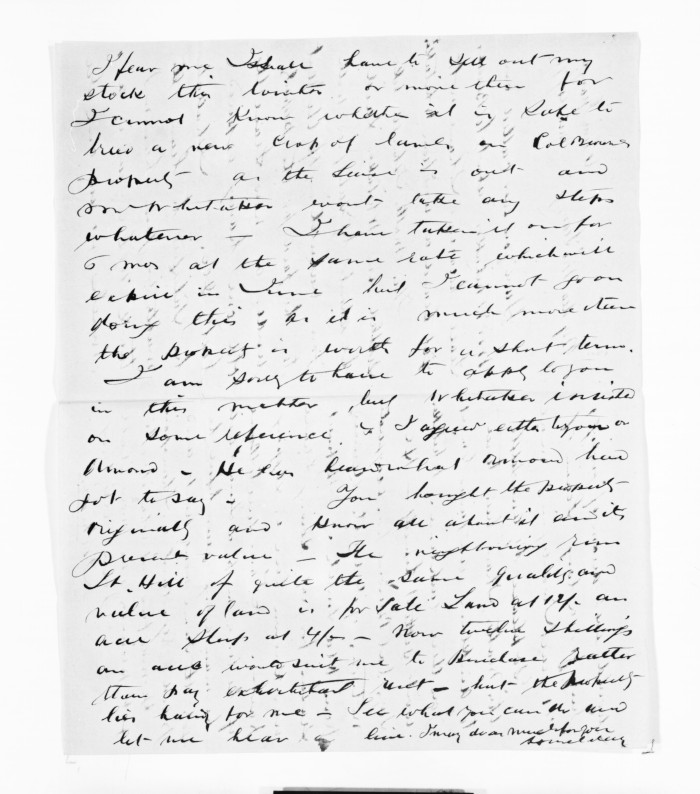 I fear me I shall have to sell out my
stock this winter or more then for
I cannot know whether it is safe to
breed a new crop of lambs on Col Browns
property as the lease is out and
Whitaker wont take any steps
whatever – I have taken it on for
6 mos at the same rate which will
expire in June but I cannot go on
doing this, as it is much more than
the property is worth for a short term.
I am sorry to have to apply to you
in this matter, but Whitaker insisted
on some reference & I agreed either to you or
Ormond – He has heard what Ormond has
got to say – You bought the property
originally and know all about it and its
present value – The neighbouring run
St. Hill of quite the same quality and
value of land is for sale Land at 12/- an
acre Sheep at 4/- – Now twelve shillings
an acre would suit me to purchase rather
than pay exhorbitant rent – but the property
lies handy for me – See what you can do and
let me hear a line. I may do as much for you
some day